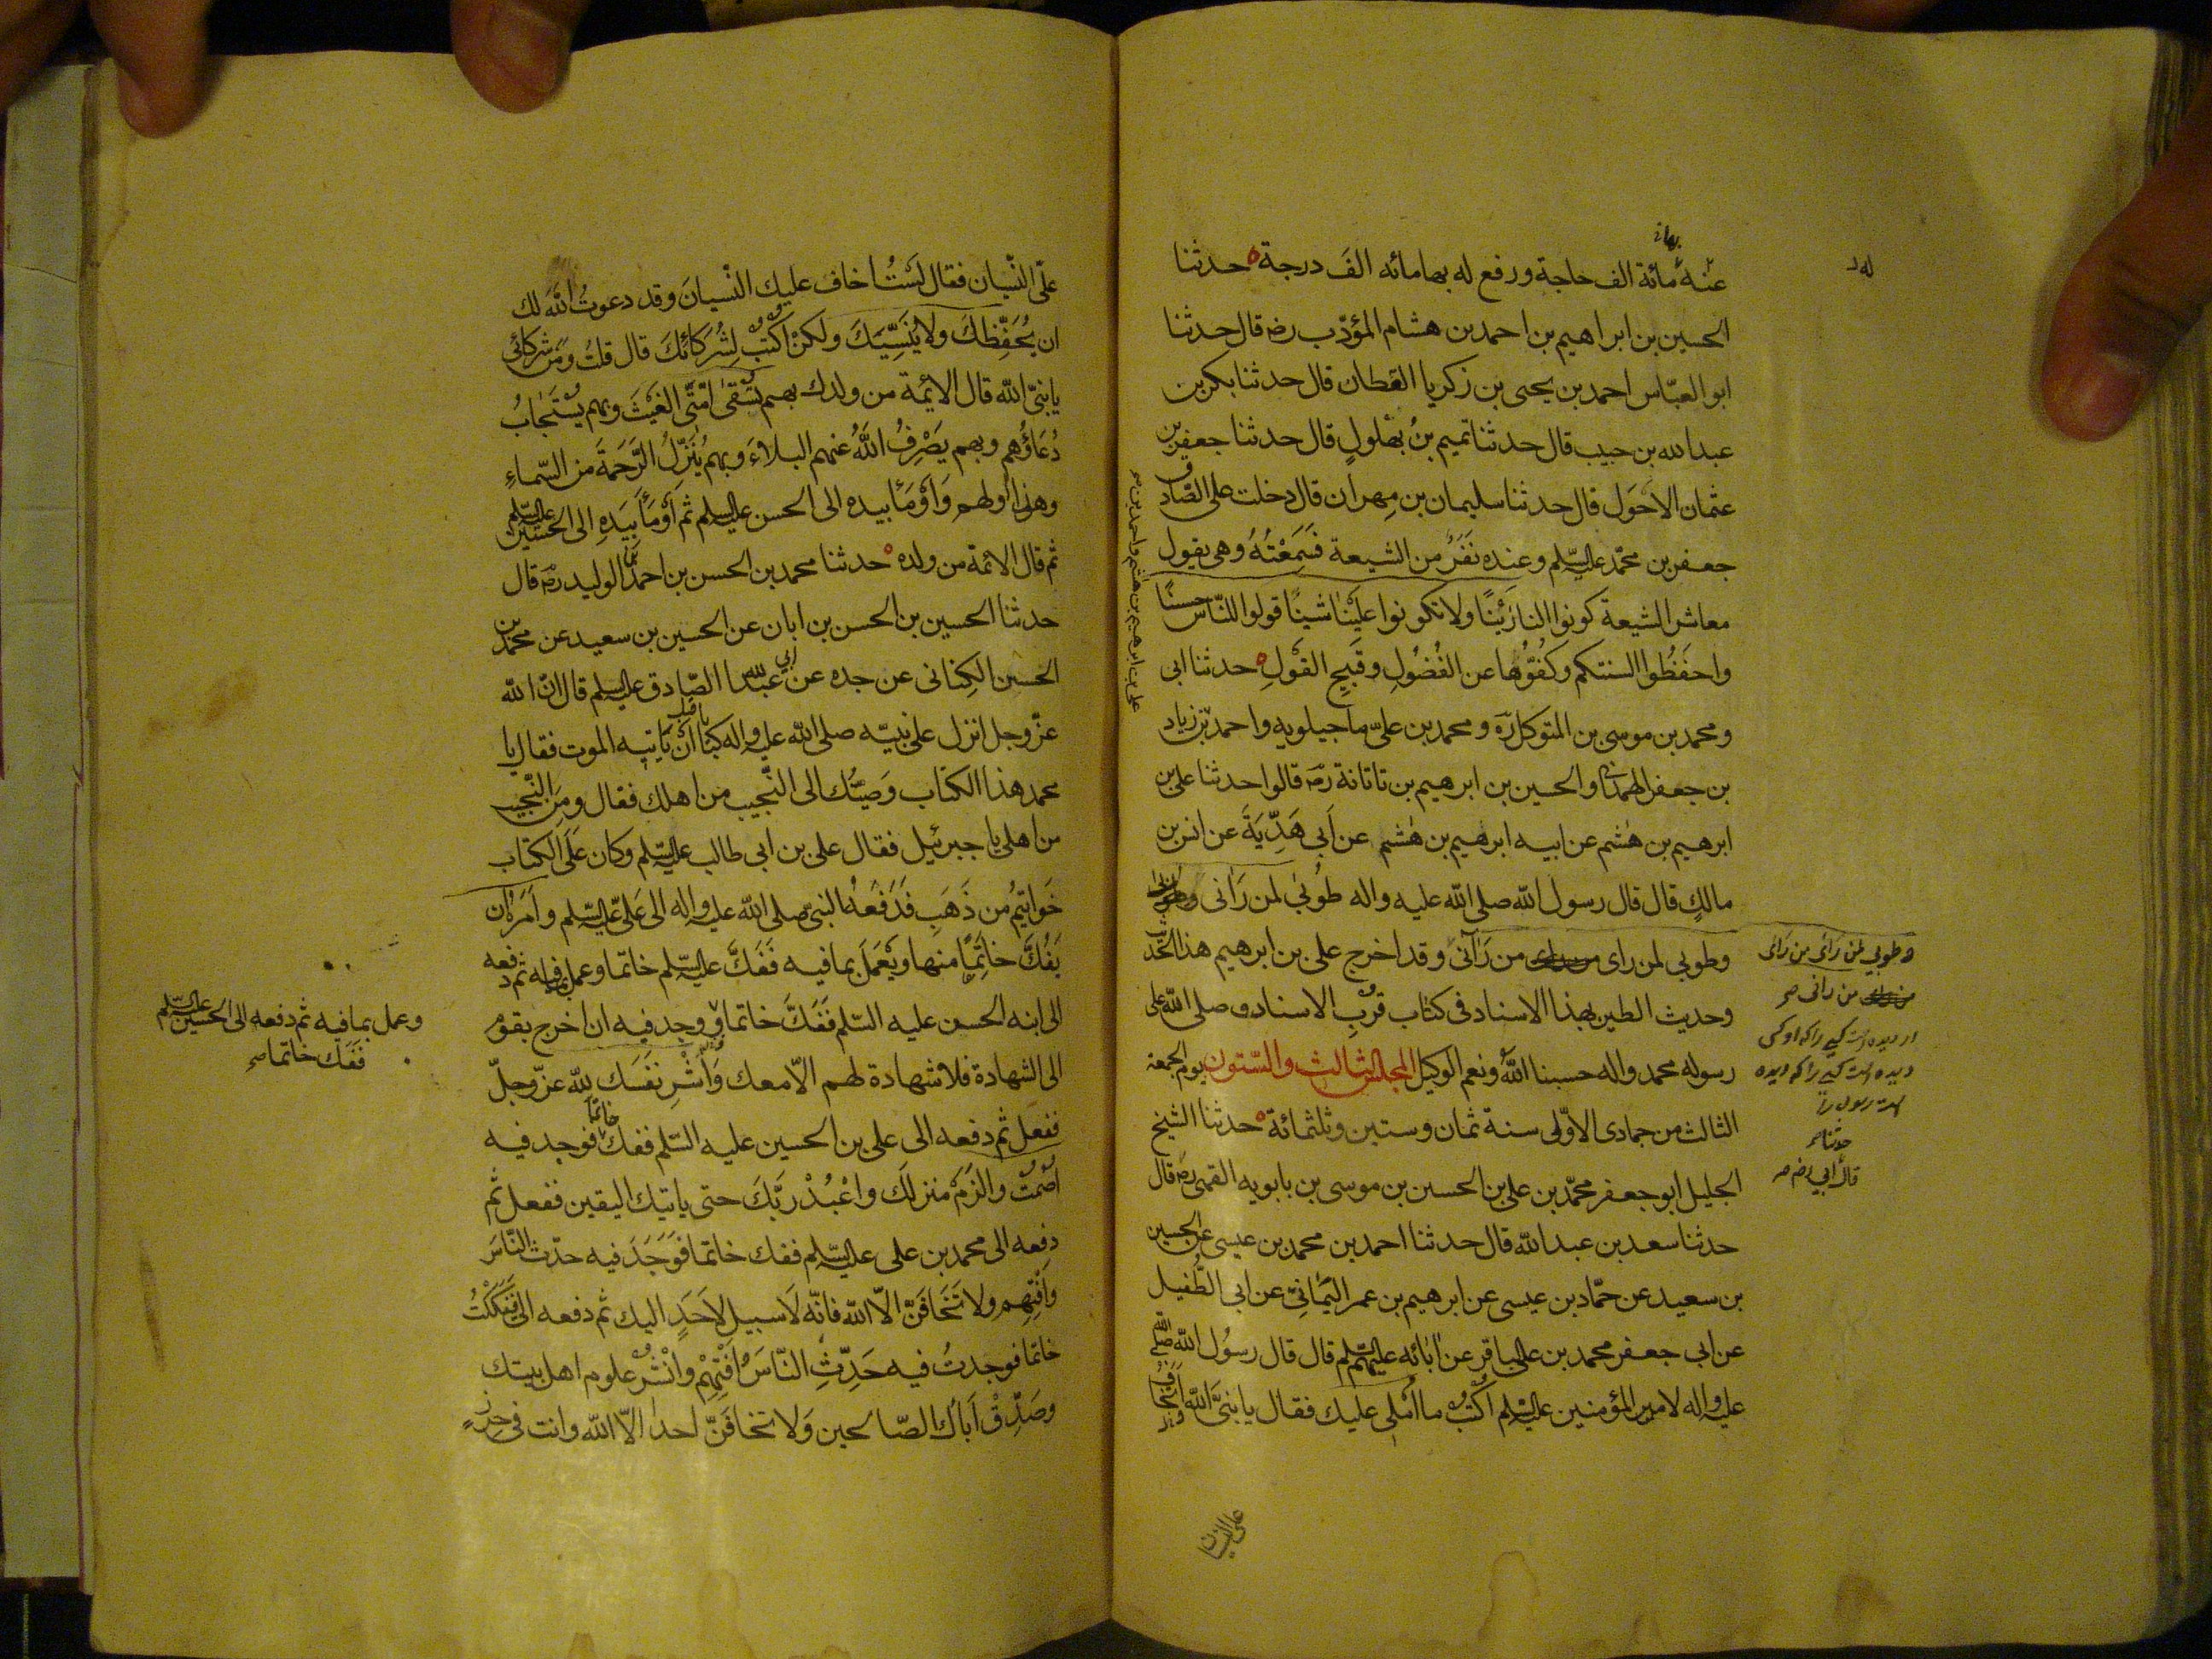 عنه مائة الف حاجة ورفع له بها مائه الف درجة حدثنا
الحسين بن ابراهيم بن احمد بن هشام المؤدّب رضه قال حدثنا
ابو العبّاس احمد بن يحيى بن زكريا القطان قال حدثنا بكر بن
عبد الله بن حبيب قال حدثنا تميم بنُ بهْلولٍ قال حدثنا جعفر بن
عثمان الاحَول قال حدثنا سليمان بن مِهران قال دخلت على الصّادق
جعفر بن محمّد عليه السّلم وعنده نَفَرٌ من الشيعة فسَمِعْتُهُ وهو يقول
معاشر الشيعة كونوا لنا زَيْنًا ولا تكونوا علَيْنا شينًا قولوا للنّاس حسنًا
واحفَظُوا السنتكم وكُفّوُها عن الفُضُولِ وقَبيحِ القَوْلِ حدثنا ابى
ومحمد بن موسى بن المتوكل ره ومحمد بن علىّ ماجيلويه واحمد بن زياد
بن جعفر الهمدانى والحسين بن ابرهيم بن ناتانة رضه قالوا حدثنا على بن
ابرهيم بن هٰشم عن ابيه ابرهيم بن هٰشم عن اَبي هَدِّيَةَ عن انس بن
مالكٍ قال قال رسول الله صلى الله عليه واله طُوبىٰ لمن رَانى
وطوبي لمن راى من رَآنى وقد اخرج على بن ابرهيم هذا الحديث
وحديث الطير بهذا الاسناد فى كتاب قرب الاسناد وصلى الله على
رسوله محمد واله حسبنا اللهُ ونعم الوكيل المجلس الثالث والسّتون يوم الجمعة
الثالث من جمادى الاوّلى سنة ثمان وستين وثلثمائة حدثنا الشيخ
الجليل ابو جعفر محمّد بن على بن الحسين بن موسى بن بابويه القمى رضه قال
حدثنا سعد بن عبد الله قال حدثنا احمد بن محمد بن عيسى عن الحسين
بن سعيد عن حمّاد بن عيسى عن ابرهيم بن عمر اليَمانِىّ عن ابى الطُّفيل
عن ابى جعفر محمد بن على الباقر عن اٰبائه عليهم السّلم قال قال رسُول الله صلى الله
عليه واله لامير المؤمنين عليه السّلم اُكْتُبْ ما اُملى عليك فقال يا نبىَّ الله اتخاف
وطوبي لمن رَاى من رَاى
من رانى صح
حدثنا
قال ابي رضه صح
على بن ابرهيم بن هشم واحمد بن
على النسيان
علىّ النّسيان فقال لسَتُ اخاف عليك النّسيانَ وقد دعوتُ اللهَ لك
ان يُحَفِّظكَ ولا يُنَسِّيَكَ ولكنْ اُكْتُبْ لِشُرَكائكَ قال قلتُ ومَن شركائى
يا نبىّ الله قال الائمة من ولدك بهم تُسْقىٰ امّتى الغَيْثَ وبهم يُسْتَجابُ
دُعَاؤُهم وبهم يَصْرِفُ اللهُ عنهم البلاءَ وبهم يُنَزِّلُ الرَّحَمةَ من السّماءِ
وهذا اولهم وَاَوْمَأ بيده الى الحسن عليه السلم ثم اَوْمَأ بيَدِهِ الى الحسَين عليه السّلم
ثم قال الائمة من ولده حدثنا محمد بن الحسن بن احمد بن الوليد رضه قال
حدثنا الحسين بن الحسن بن ابان عن الحسين بن سعيد عن محمد بن
الحسين الكِنانى عن جده عن ابى عبد الله الصّادق عليه السلم قال انّ الله
عزّ وجل انزل على نبيّه صلى الله عليه واله كتابا قبل ان يَاتيه الموت فقال يا
محمد هذا الكتاب وَصيّتُك الى النّجيب من اهلك فقال ومَن النّجيب
من اهلى يا جبرئيل فقال على بن ابى طالب عليه السّلم وكان عَلَى الكتاب
خَواتيمُ من ذَهَبٍ فَدَفَعهُ النبيّ صلى الله عليه واله الى عَلىّ عليه السّلم وامَرَهُ ان
يَفُكَّ خاتِمًا منها ويَعْمَلَ بما فيه فَفَكَّ عليه السّلم خاتما وعمل بما فيه ثم دفعه
الى ابنه الحسن عليه السّلم فَفَكَّ خاتما ووجد فيه ان اخرج بقوم
الى الشهادة فلا شهادة لهم الّا معك وَاَشْرِ نفَسَك لِلّه عزّ وجلّ
ففعل ثم دفعه الى على بن الحسين عليه السّلم ففك خاتمًا فوجد فيه
اُصْمُتْ والزَمْ منزلَك واعْبُدْ ربَّكَ حتى ياتيك اليقين ففعل ثم
دفعه الى محمد بن على عليه السّلم ففك خاتما فوَجَدَ فيه حدّث النّاسَ
واَفْتِهم ولا تَخَافَنّ الّا الله فانّه لَا سبيل لاَحَدٍ اليك ثم دفعه الىّ فَفَكَكْتُ
خاتما فوجدتُ فيه حَدِّثِ النّاسَ وافْتِهِمْ وانْشُرْ علوم اهل بيتك
وصَدِّقْ اَباك الصّالحين وَلا تخافَنّ احدا الّا الله وانت فى حِرزٍ
وعمل بما فيه ثم دفعه الى الحسين عليه السّلم
فَفَك خاتما صح